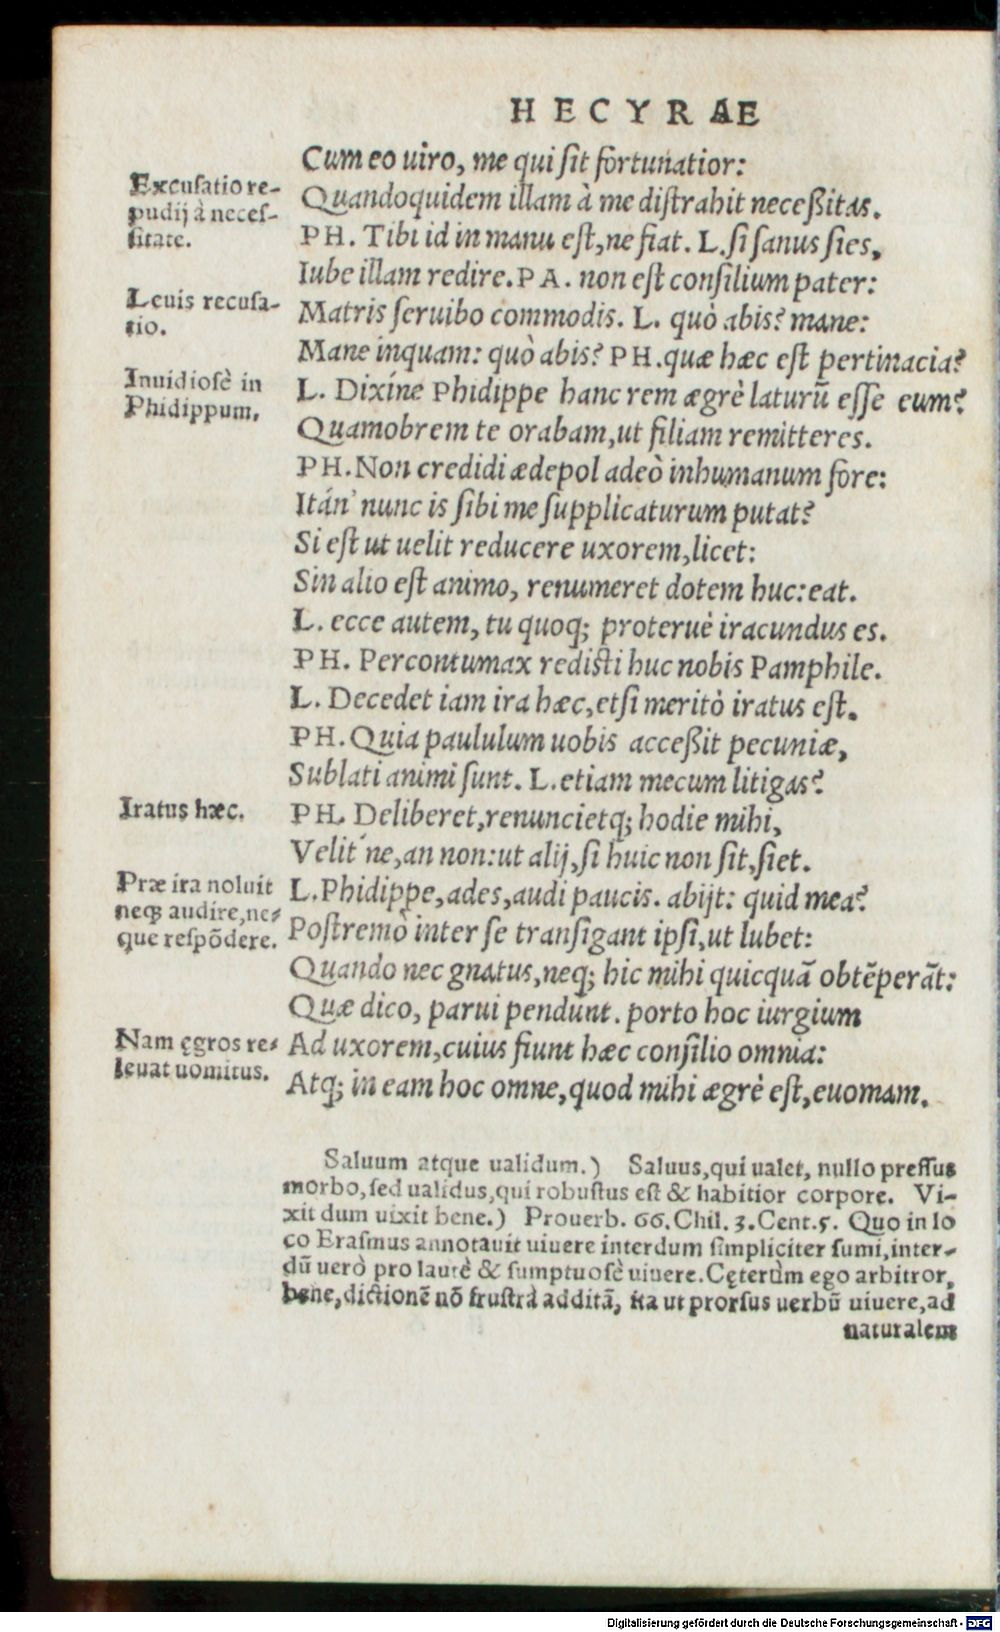 HECYRAE
Cum eo uiro, me qui sit fortunatior:
Excusatio re-
pudij à neces-
sitate.
Quandoquidem illam à me distrahit neceßitas.
PH. Tibi id in manu est, ne fiat. L. si sanus sies,
Iube illam redire. PA. non est consilium pater:
Leuis recusa-
tio.
Matris seruibo commodis. L. quò abis? mane:
Mane inquam: quò abis? PH. quæ hæc est pertinacia?
Inuidiosè in
Phidippum.
L. Dixíne Phidippe hanc rem ægrè laturũ esse eum?
Quamobrem te orabam, ut filiam remitteres.
PH. Non credidi ædepol adeò inhumanum fore:
Itán' nunc is sibi me supplicaturum putat?
Si est ut uelit reducere uxorem, licet:
Sin alio est animo, renumeret dotem huc: eat.
L. ecce autem, tu quoq; proteruè iracundus es.
PH. Percontumax redisti huc nobis Pamphile.
L. Decedet iam ira hæc, etsi meritò iratus est.
PH. Quia paululum uobis acceßit pecuniæ,
Sublati animi sunt. L. etiam mecum litigas?
Iratus hæc.
PH. Deliberet, renuncietq; hodie mihi,
Velit'ne, an non: ut alij, si huic non sit, siet.
Præ ira noluit
neq; audire, ne-
que respõdere.
L. Phidippe, ades, audi paucis. abijt: quid mea?
Postremò inter se transigant ipsi, ut lubet:
Quando nec gnatus, neq; hic mihi quicquã obtẽperãt:
Quæ dico, parui pendunt. porto hoc iurgium
Nam ęgros re-
leuat uomitus.
Ad uxorem, cuius fiunt hæc consilio omnia:
Atq; in eam hoc omne, quod mihi ægrè est, euomam.
Saluum atque ualidum.) Saluus, qui ualet, nullo pressus
morbo, sed ualidus, qui robustus est & habitior corpore. Vi-
xit dum uixit bene.) Prouerb. 66. Chil. 3. Cent. 5. Quo in lo
co Erasmus annotauit uiuere interdum simpliciter sumi, inter-
dũ uerò pro lautè & sumptuosè uiuere. Cęterùm ego arbitror,
bene, dictionẽ nõ frustrà additã, ita ut prorsus uerbũ uiuere, ad
naturalem
Digitalisierung gefördert durch die Deutsche Forschungsgemeinschaft - DFG